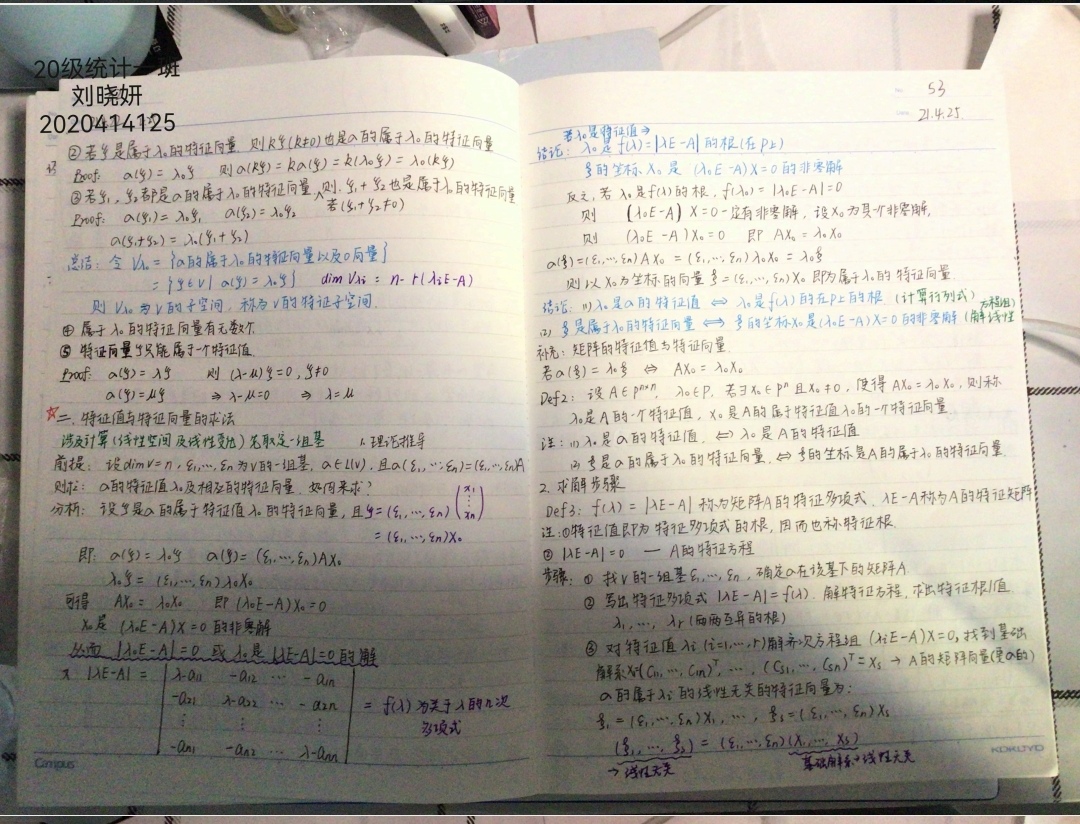 20级统计一班
刘晓妍
2020414125
②若ξ是属于λ₀的特征向量 则kξ(k≠0)也是α的属于λ₀的特征向量
Proof: α(ξ)=λ₀ξ 则α(kξ)=kα(ξ)=k(λ₀ξ)=λ₀(kξ)
③若ξ₁,ξ₂都是α的属于λ₀的特征向量,则ξ₁+ξ₂也是属于λ₀的特征向量
若(ξ₁+ξ₂≠0)
Proof: α(ξ₁)=λ₀ξ₁ α(ξ₂)=λ₀ξ₂
α(ξ₁+ξ₂)=λ₀(ξ₁+ξ₂)
总结: 令Vλ₀={α的属于λ₀的特征向量以及0向量}
={ξ∈V| α(ξ)=λ₀ξ} dim Vλᵢ = n-r(λᵢE-A)
则Vλ₀为V的子空间,称为V的特征子空间.
④属于λ₀的特征向量有无数个.
⑤特征向量ξ只能属于一个特征值.
Proof: α(ξ)=λξ 则(λ-μ)ξ=0,ξ≠0
α(ξ)=μξ ⇒ λ-μ=0 ⇒ λ=μ
☆二.特征值与特征向量的求法
涉及计算(线性空间及线性变换)先取定一组基 1.理论推导
前提: 设dimV=n,ε₁,…,εn为V的一组基,α∈L(V),且α(ε₁,…,εn)=(ε₁,…,εn)A
则求: α的特征值λ₀及相应的特征向量.如何来求?
分析: 设ξ是α的属于特征值λ₀的特征向量,且ξ=(ε₁,…,εn)(x₁ ⋮ xn)
=(ε₁,…,εn)X₀
即: α(ξ)=λ₀ξ α(ξ)=(ε₁,…,εn)AX₀
λ₀ξ=(ε₁,…,εn)λ₀X₀
可得 AX₀=λ₀X₀ 即(λ₀E-A)X₀=0
X₀是(λ₀E-A)X=0的非零解
从而 |λ₀E-A|=0 或λ₀是|λE-A|=0的解
|λE-A| = | λ-a₁₁ -a₁₂ … -a₁n
-a₂₁ λ-a₂₂ … -a₂n
⋮ ⋮
-an₁ -an₂ … λ-ann | = f(λ)为关于λ的n次
多项式
Campus
53
21.4.25
若λ₀是特征值→
结论: λ₀是f(λ)=|λE-A|的根(在P上)
ξ的坐标X₀是(λ₀E-A)X=0的非零解
反之,若λ₀是f(λ)的根,f(λ₀)=|λ₀E-A|=0
则 (λ₀E-A)X=0一定有非零解,设X₀为其一个非零解,
则 (λ₀E-A)X₀=0 即AX₀=λ₀X₀
α(ξ)=(ε₁,…,εn)AX₀=(ε₁,…,εn)λ₀X₀=λ₀ξ
则以X₀为坐标的向量ξ=(ε₁,…,εn)X₀即为属于λ₀的特征向量
结论: (1)λ₀是α的特征值 ⇔ λ₀是f(λ)的在P上的根 (计算行列式)
(2) ξ是属于λ₀的特征向量 ⇔ ξ的坐标X₀是(λ₀E-A)X=0的非零解 (解线性方程组)
补充: 矩阵的特征值与特征向量
若α(ξ)=λ₀ξ ⇔ AX₀=λ₀X₀
Def2: 设A∈Pⁿˣⁿ, λ₀∈P,若∃X₀∈Pⁿ且X₀≠0,使得AX₀=λ₀X₀,则称
λ₀是A的一个特征值,X₀是A的属于特征值λ₀的一个特征向量
注: (1)λ₀是α的特征值 ⇔ λ₀是A的特征值
(2)ξ是α的属于λ₀的特征向量 ⇔ ξ的坐标是A的属于λ₀的特征向量.
2.求解步骤
Def3: f(λ)=|λE-A|称为矩阵A的特征多项式.λE-A称为A的特征矩阵
注:①特征值即为特征多项式的根,因而也称特征根.
②|λE-A|=0 — A的特征方程
步骤: ①找V的一组基ε₁,…,εn,确定α在该基下的矩阵A
②写出特征多项式|λE-A|=f(λ).解特征方程,求出特征根/值
λ₁,…,λr(两两互异的根)
③对特征值λᵢ(i=1,…,r)解齐次方程组(λᵢE-A)X=0,找到基础
解系X₁=(C₁₁,…,C₁n)ᵀ,…,(Cs₁,…,Csn)ᵀ=Xs → A的矩阵向量(更α的)
α的属于λᵢ的线性无关的特征向量为:
ξ₁=(ε₁,…,εn)X₁,…,ξs=(ε₁,…,εn)Xs
(ξ₁,…,ξs)=(ε₁,…,εn)(X₁,…,Xs)
→线性无关 基础解系→线性无关
KOKUYO